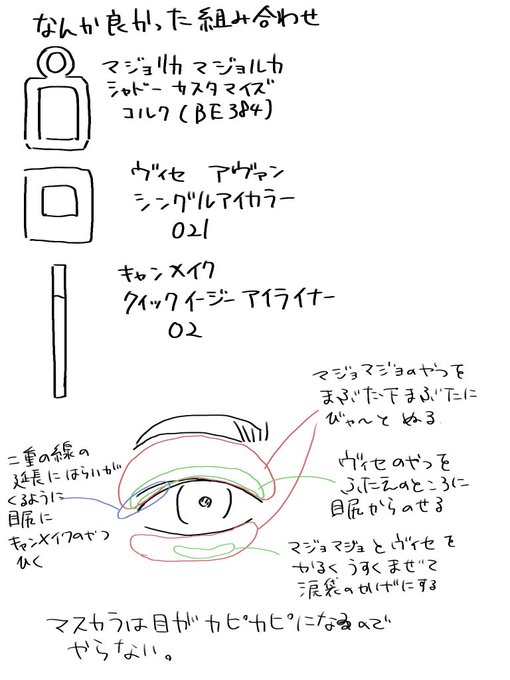 なんか良かった組み合わせ
マジョリカ マジョルカ
シャドー カスタマイズ
コルク(BE384)
ヴィセ アヴァン
シングルアイカラー
021
キャンメイク
クイックイージーアイライナー
02
マジョマジョのやつを
まぶた下まぶたに
びゃーと ぬる
二重の線の
延長にはらいが
くるように
目尻に
キャンメイクのやつ
ひく
ヴィセのやつを
ふたえのところに
目尻からのせる
マジョマジョとヴィセを
かるくうすくまぜて
涙袋のかげにする
マスカラは目がカピカピになるので
やらない。